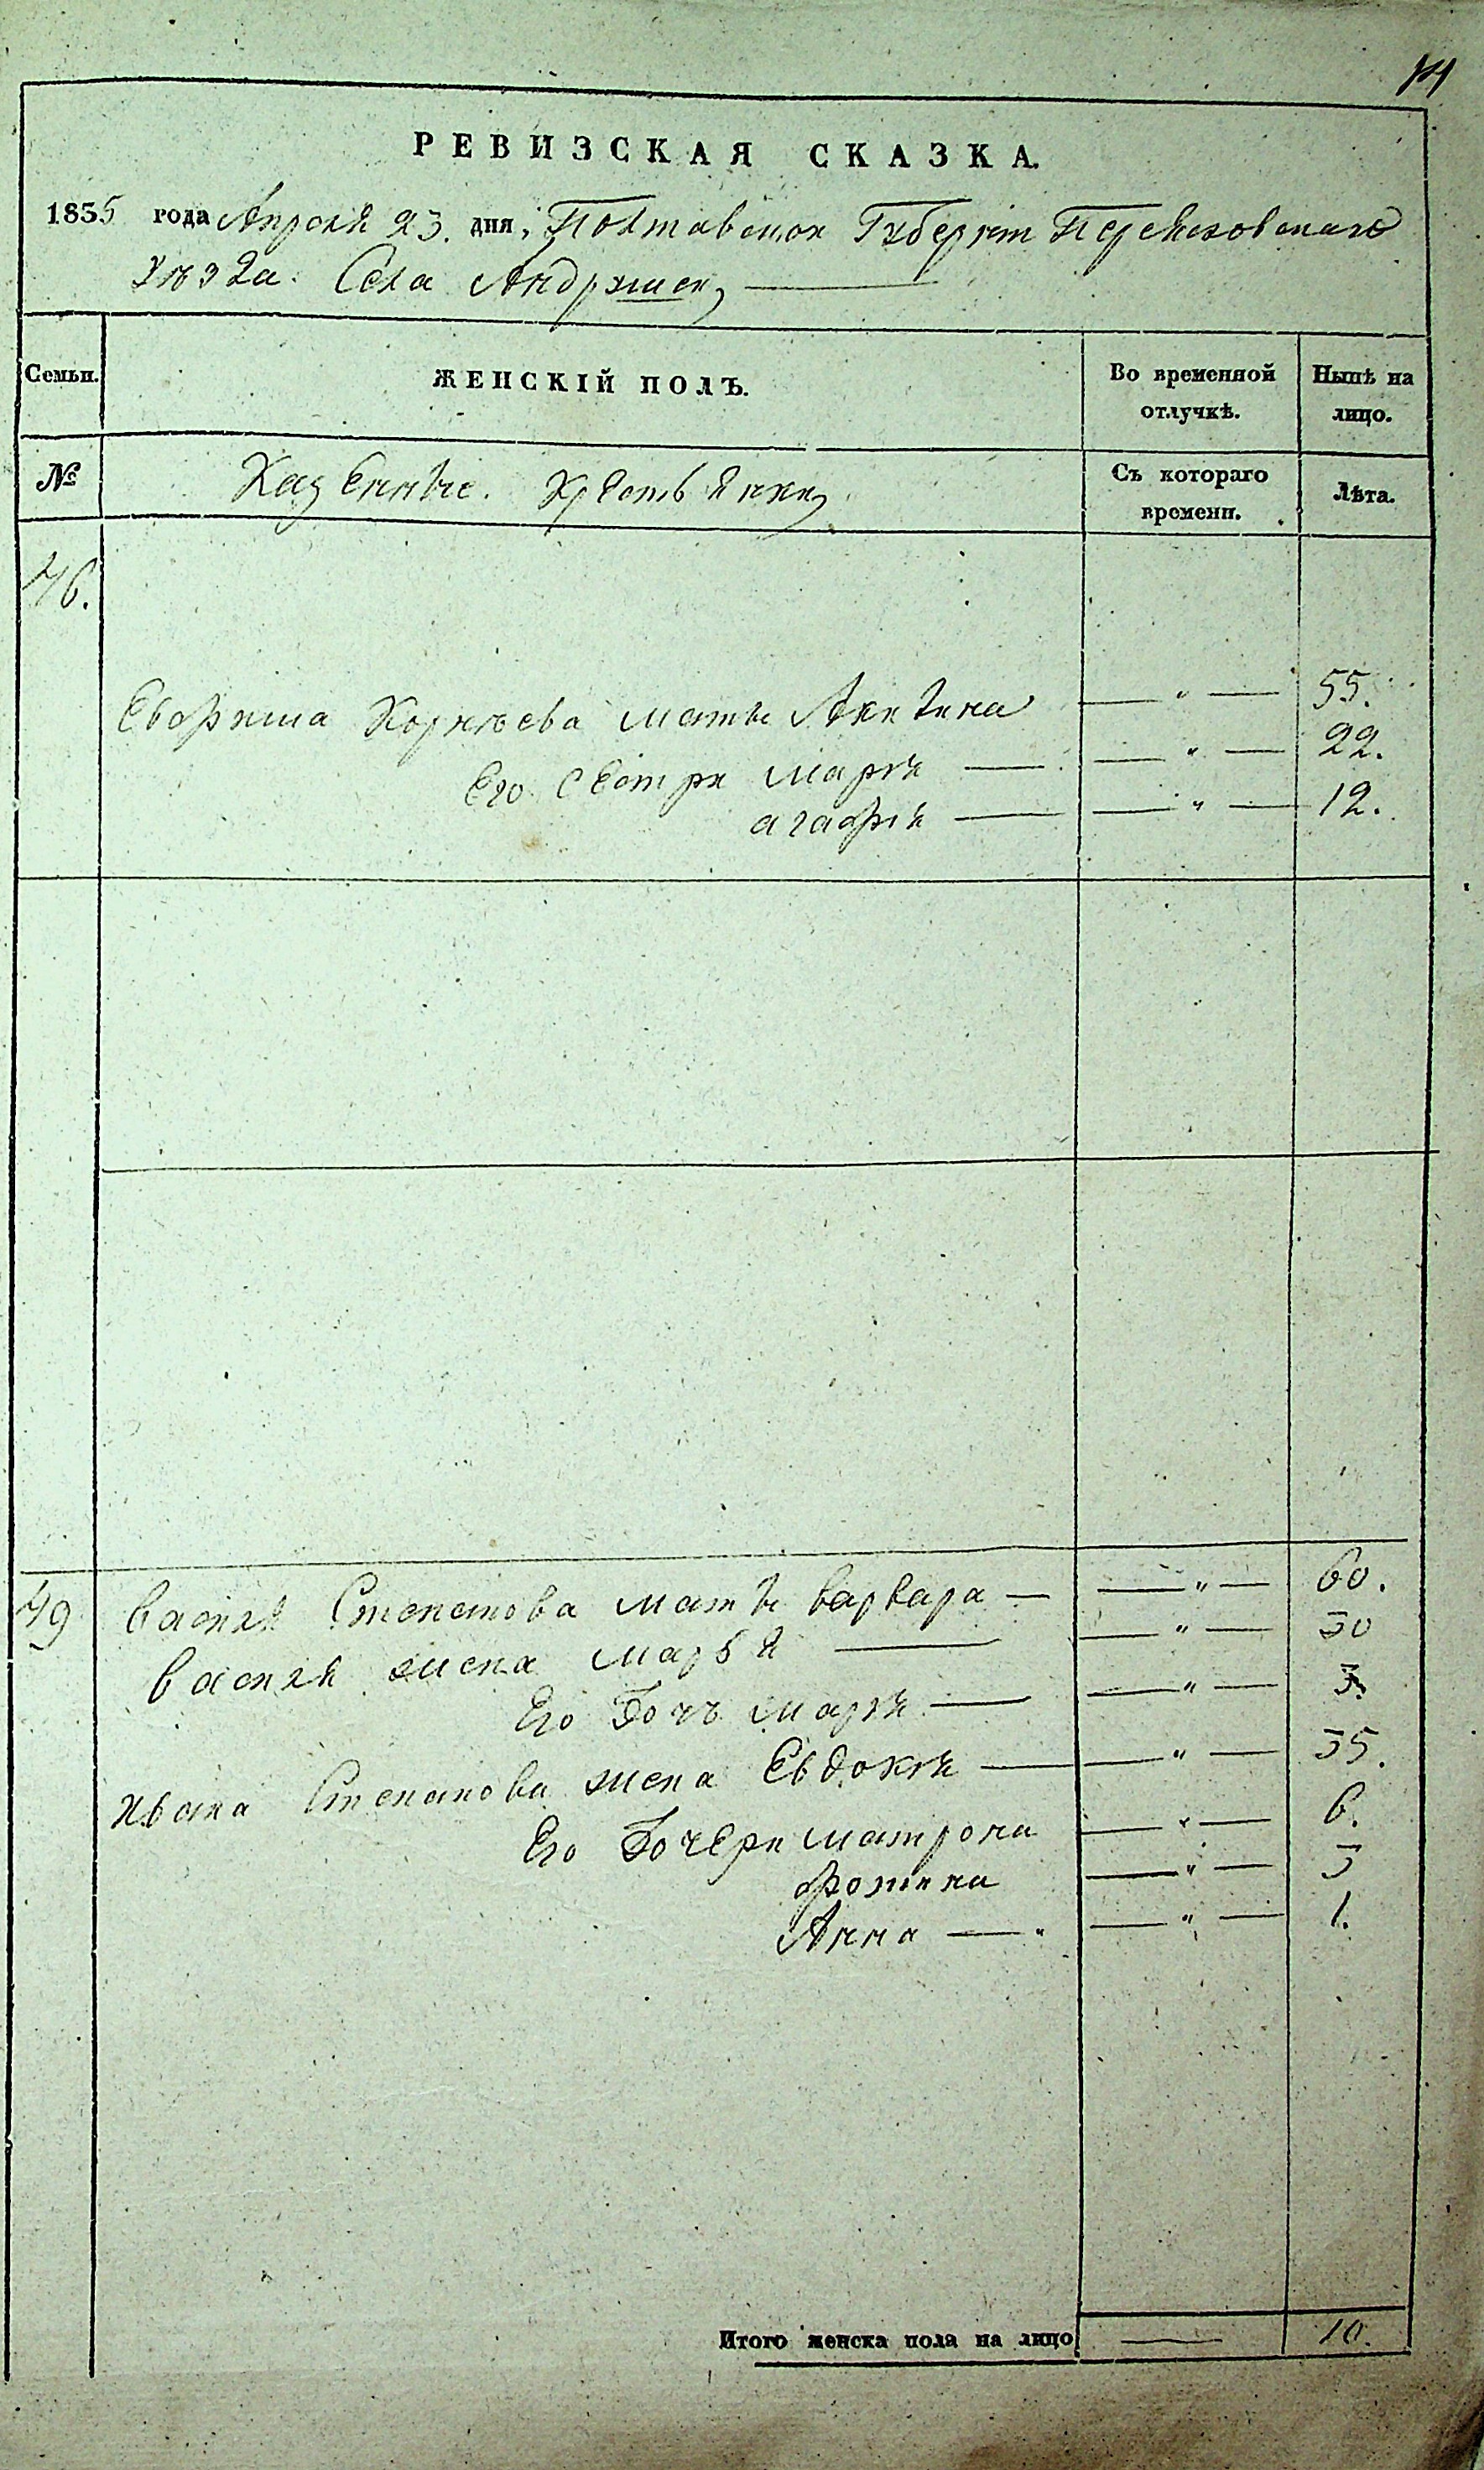 РЕВИЗСКАЯ СКАЗКА.
1835 года Апреля 23. дня, Полтавской Губерніи Переясловскаго
Уѣзда. Села Андрушек,
Семьи.
ЖЕНСКІЙ ПОЛЪ.
Во временной отлучкѣ.
Нынѣ на лицо.
№
Казенные. Крестьянки,
Съ котораго времени.
Лѣта.
46.
Корнѣева мать Акилина — " — 55.
Его сестри Марія — — " — 22.
агафія — — " — 12.
49 Василя Степанова мать варвара — — " — 60.
Василя жена марья — — " — 30
Его Дочъ марія — — " — 3.
ивана Степанова жена Евдокія — — " — 35.
Его Дочери матрона — " — 6.
фотина — " — 3
Анна — — " — 1.
Итого женска пола на лицо — 10.